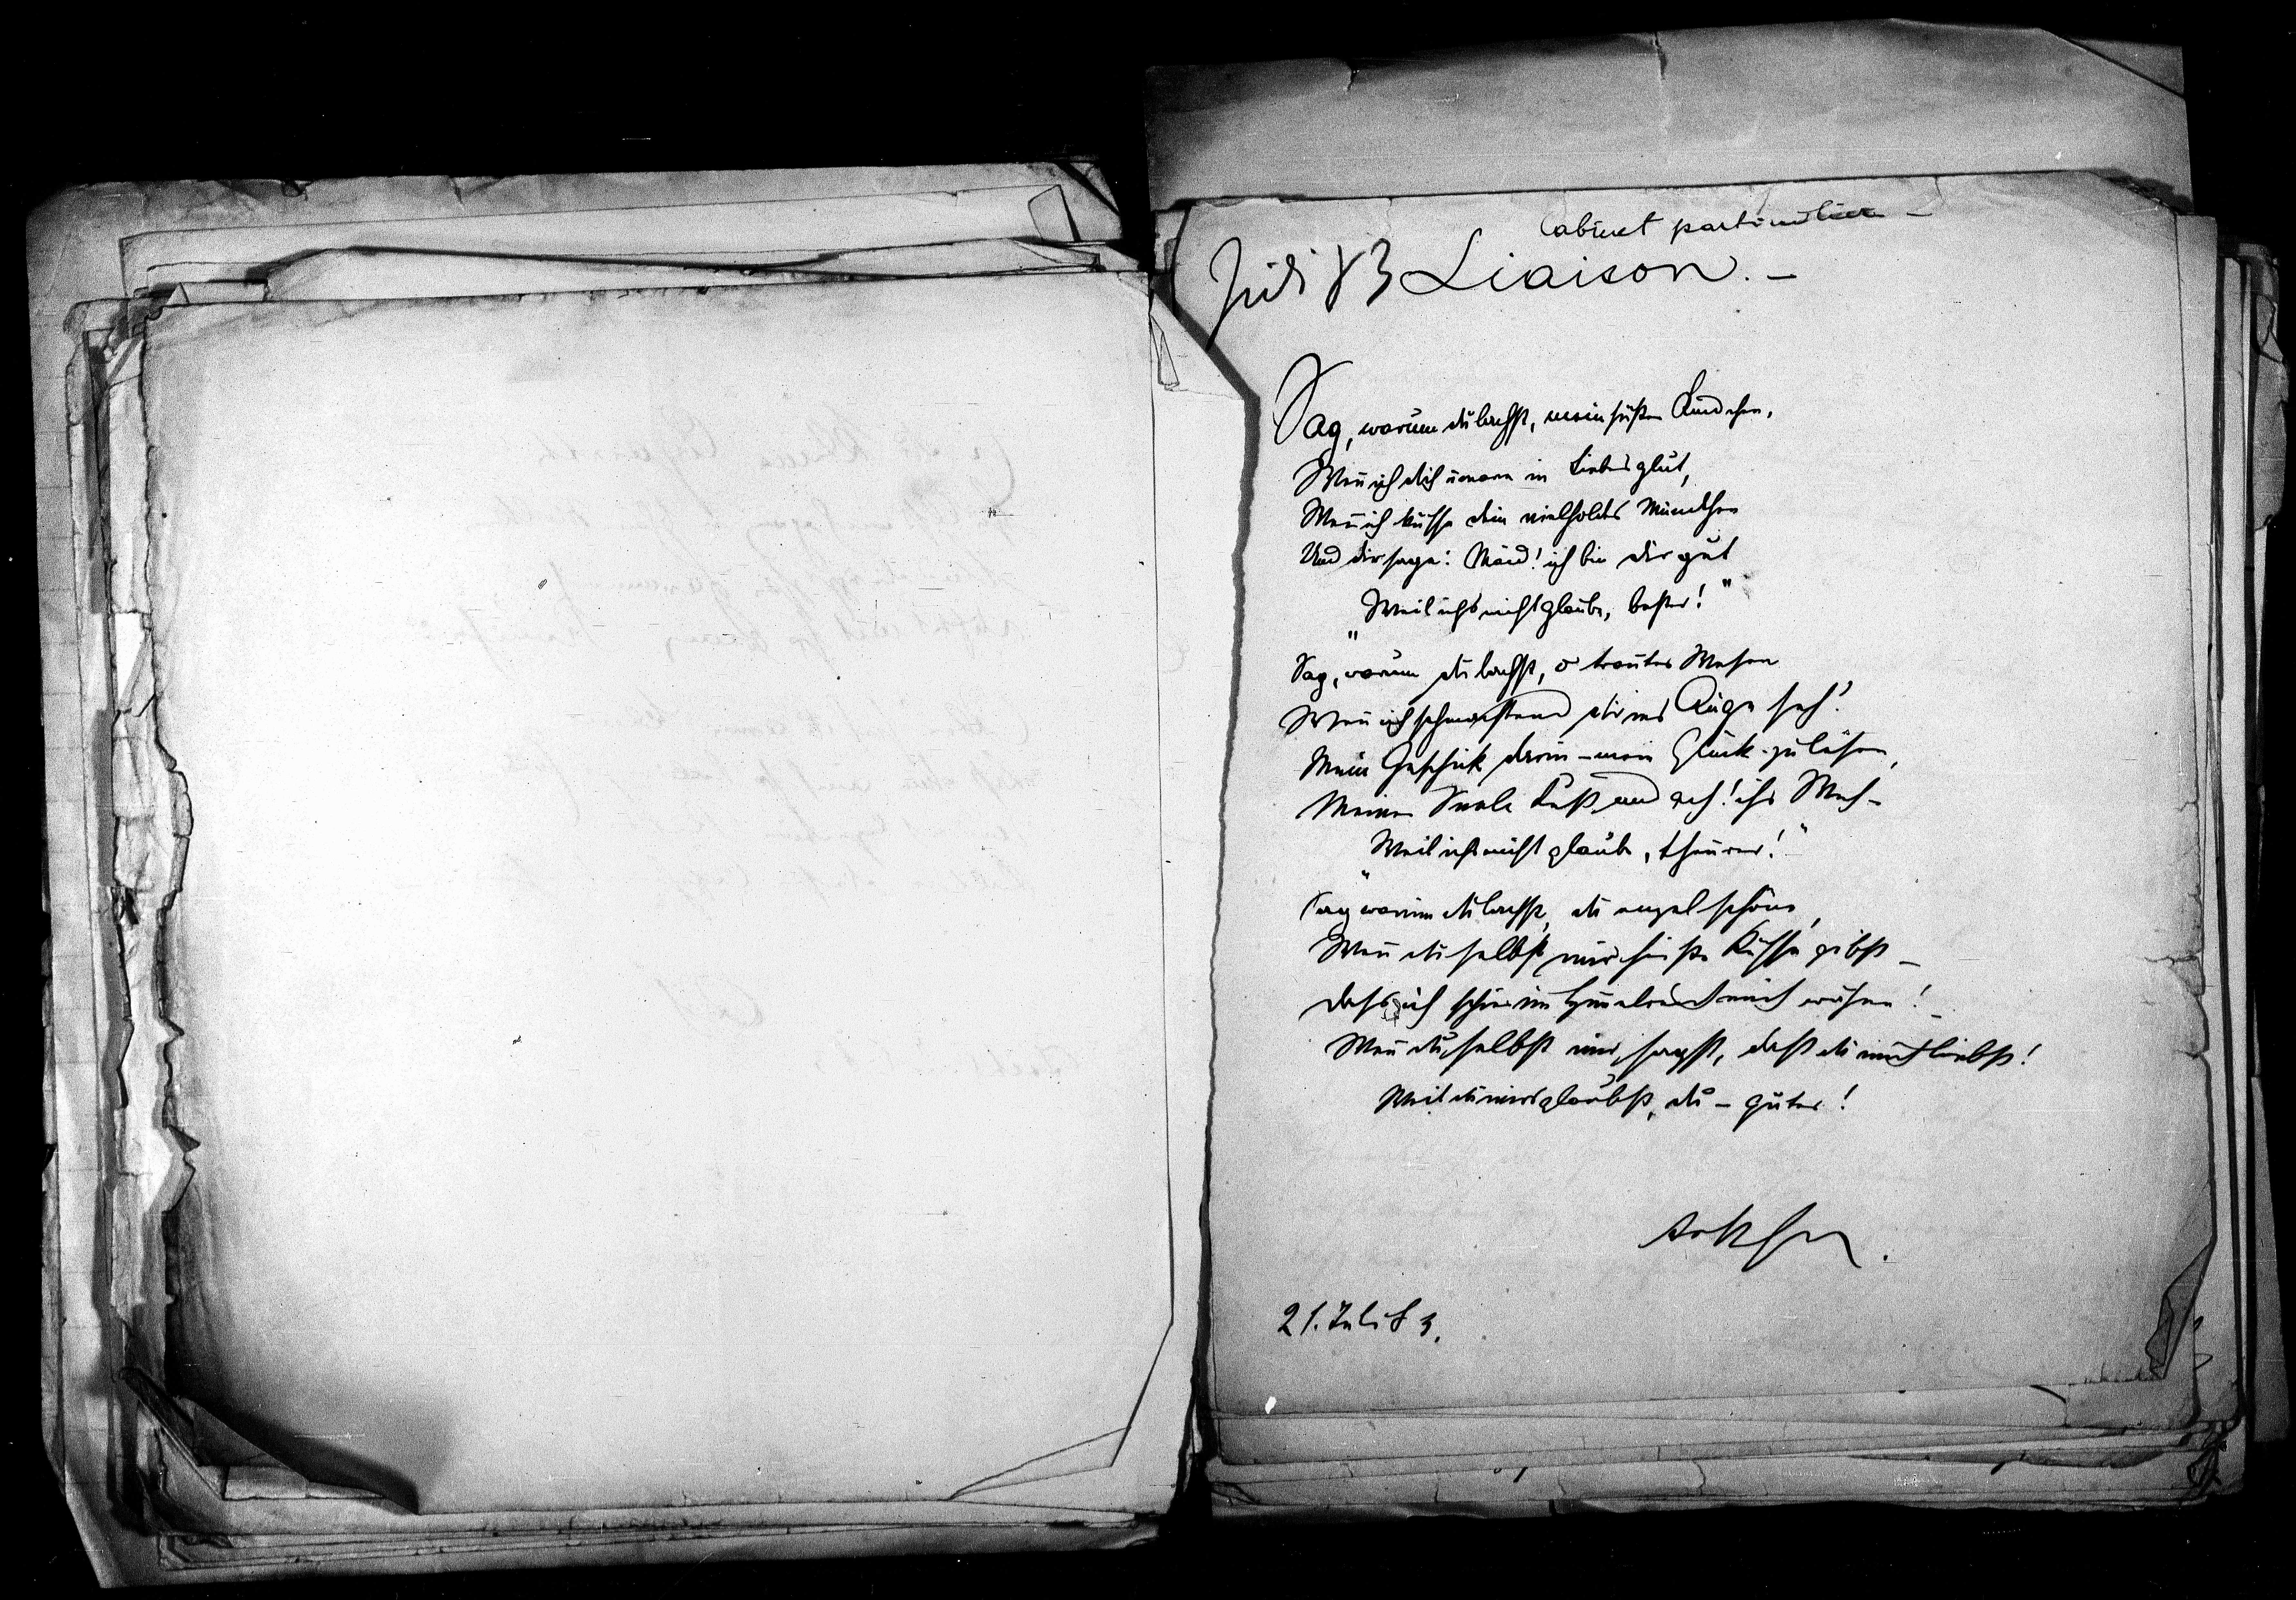 Cabinet particulier –
Juli 83 Liaison. –
Sag, warum du lachst, mein süßes Kindchen,
Wenn ich dich umarm in Liebesglut,
Wenn ich küsse dein vielholdes Mündchen
Und dir sage: Maid! ich bin dir gut
„Weil ichs nicht glaube, bester!"
Sag, warum du lachst, o trautes Wesen
Wenn ich schmachtend dir ins Auge seh?
Mein Geschick darin – mein Glück – zu lesen,
Meiner Seele Lust und ach! ihr Weh –
„Weil ichs nicht glaube, theurer!"
Sag warum du lachst, du engelschöne,
Wenn du selbst mir heiße Küsse gibst –
Dass ich schier im Himmel mich wähne!
Wenn du selbst mir sagst, daß du mich liebst!
Weil du mirs glaubst, du – guter!
21. Juli 83.